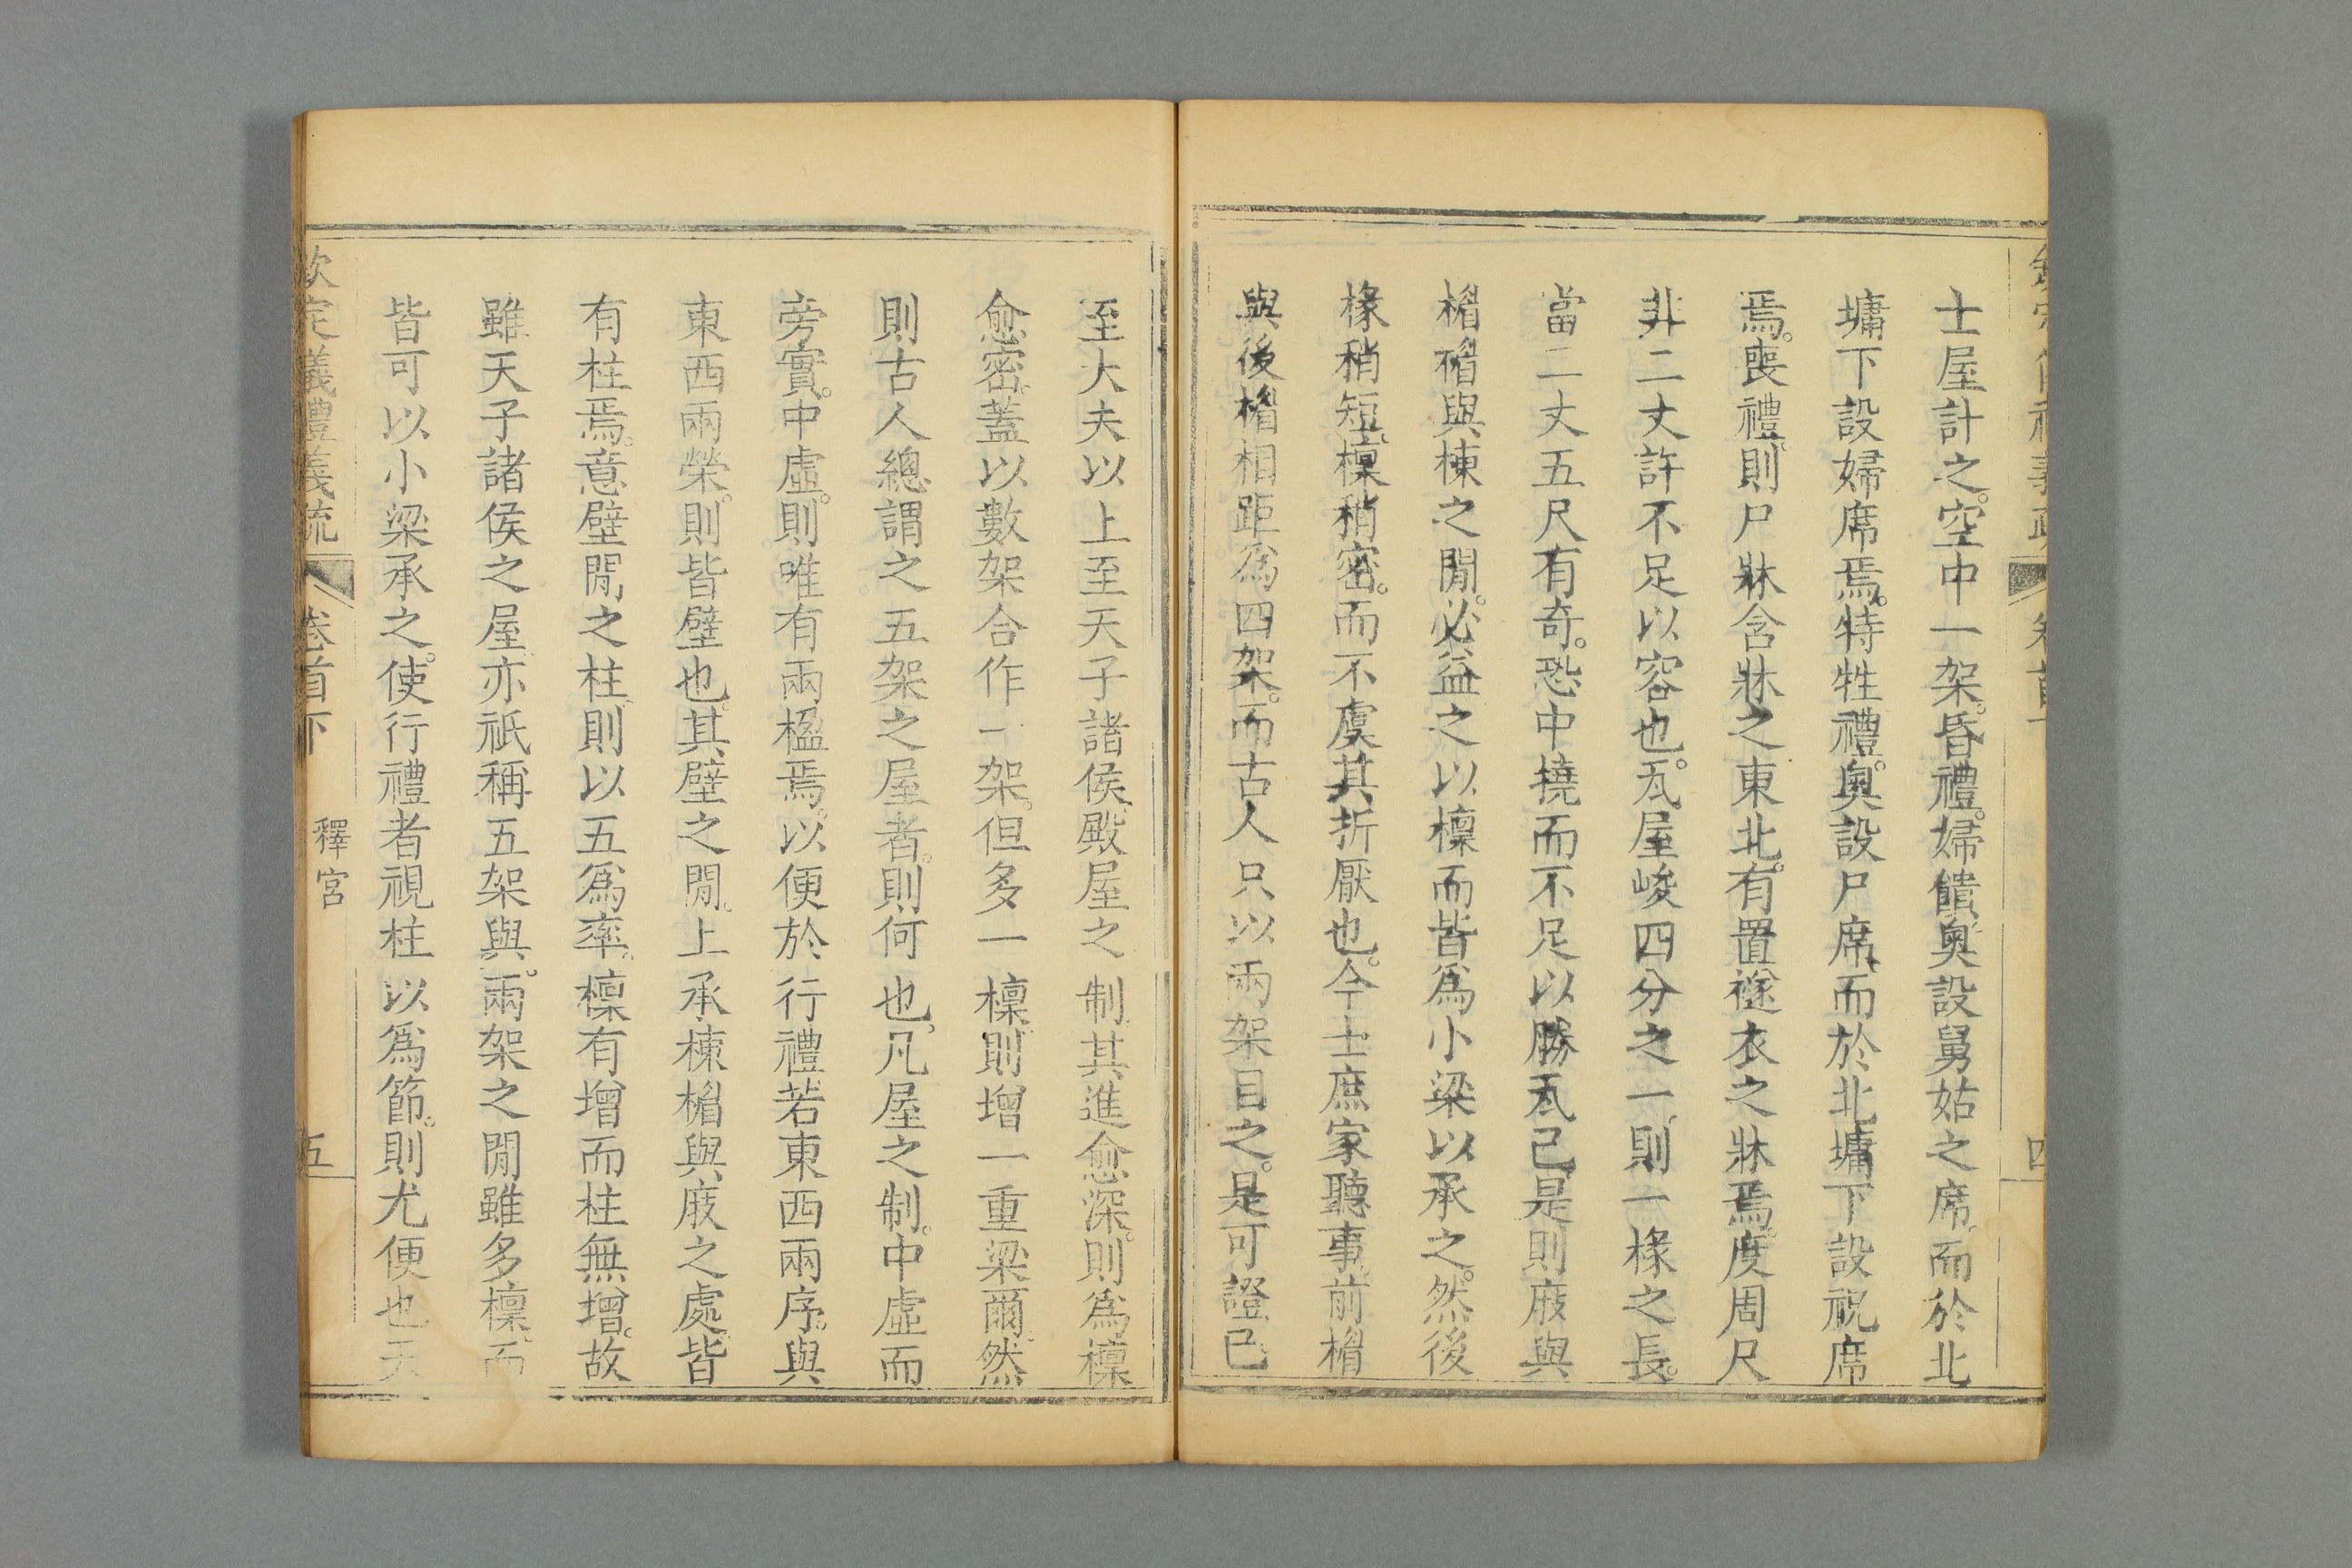 士屋計之。空中一架。昏禮。婦饋奥設舅姑之席。而於北
墉下設婦席焉。特牲禮。奥設尸席、而於北墉下設祝席
焉。喪禮、則尸牀含牀之東北。有置襚衣之牀焉。度周尺
非二丈許不足以容也。瓦屋峻四分之一、則一椽之長。
當二丈五尺有奇。恐中撓而不足以勝瓦已是則庪與
楣楣與棟之閒。必益之以檩而皆爲小梁以承之。然後
椽稍短、檩稍密。而不虞其折厭也。今士庶家聽事前楣
與後楣相距爲四架。而古人只以兩架目之。是可證已
至大夫以上至天子諸侯、殿屋之制其進愈深。則爲檩
愈密、蓋以數架合作一架。但多一檩、則增一重梁爾、然
則古人總謂之五架之屋者。則何也、凡屋之制。中虛而
旁實。中虛。則唯有兩楹焉。以便於行禮若東西兩序。與
東西兩榮。則皆壁也。其壁之閒。上承棟楣與庪之處、皆
有柱焉。意壁閒之柱、則以五爲率。檩有增而柱無增。故
雖天子諸侯之屋亦祇稱五架與。兩架之閒雖多檩。而
皆可以小梁承之。使行禮者視柱以爲節。則尤便也天
欽定儀禮義疏
卷首下
釋宮
五